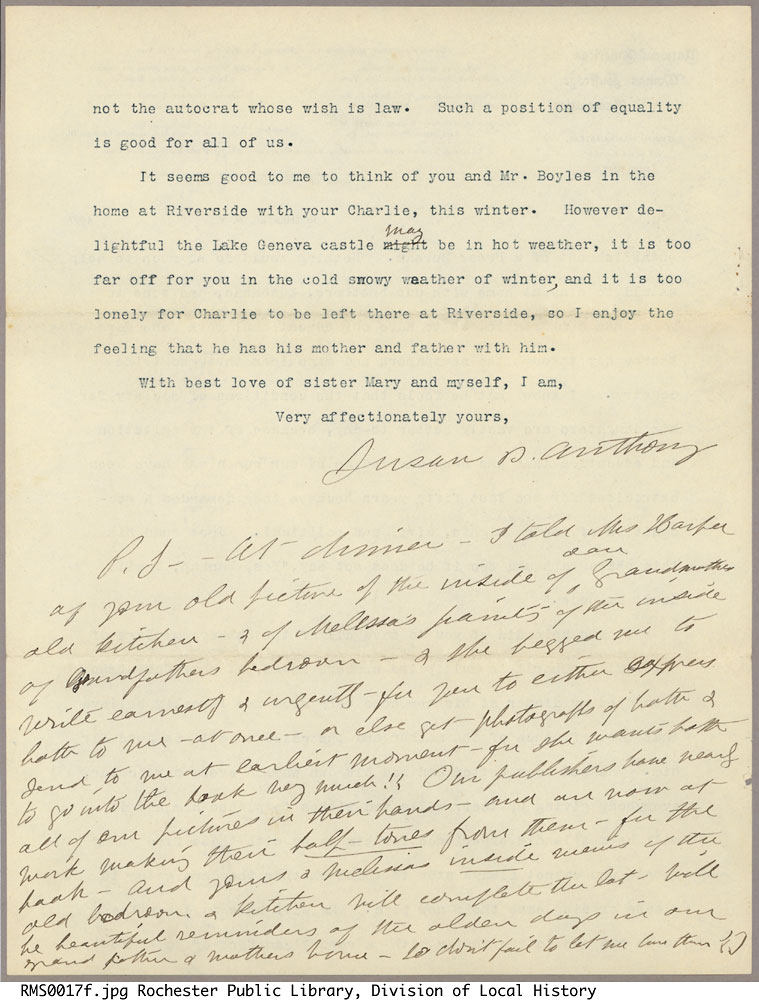 not the autocrat whose wish is law. Such a position of equality
is good for all of us.
It seems good to me to think of you and Mr. Boyles in the
home at Riverside with your Charlie, this winter. However de-
may
lightful the Lake Geneva castle might be in hot weather, it is too
far off for you in the cold snowy weather of winter, and it is too
lonely for Charlie to be left there at Riverside, so I enjoy the
feeling that he has his mother and father with him.
With best love of sister Mary and myself, I am,
Very affectionately yours,
Susan B. Anthony
P. S. - At dinner - I told Mrs Harper
of your old picture of the inside of our Grandmothers
old kitchen - & of Melissa's of the inside
of Grandfathers bedroom - & she begged me to
write earnestly & urgently - for you to either express
both to me - at once - or else get photographs of both &
send to me at earliest moment - for she wants both
to go into the book very much!! Our publishers have nearly
all of our pictures in their hands - and are now at
work making their half-tones from them - for the
book - and yours & Melissas inside views of the
old bedroom & kitchen will complete the lot - will
be beautiful reminders of the olden days in our
grand father & mothers home - So don't fail to let me have them
RMS0017f.jpg Rochester Public Library, Division of Local History